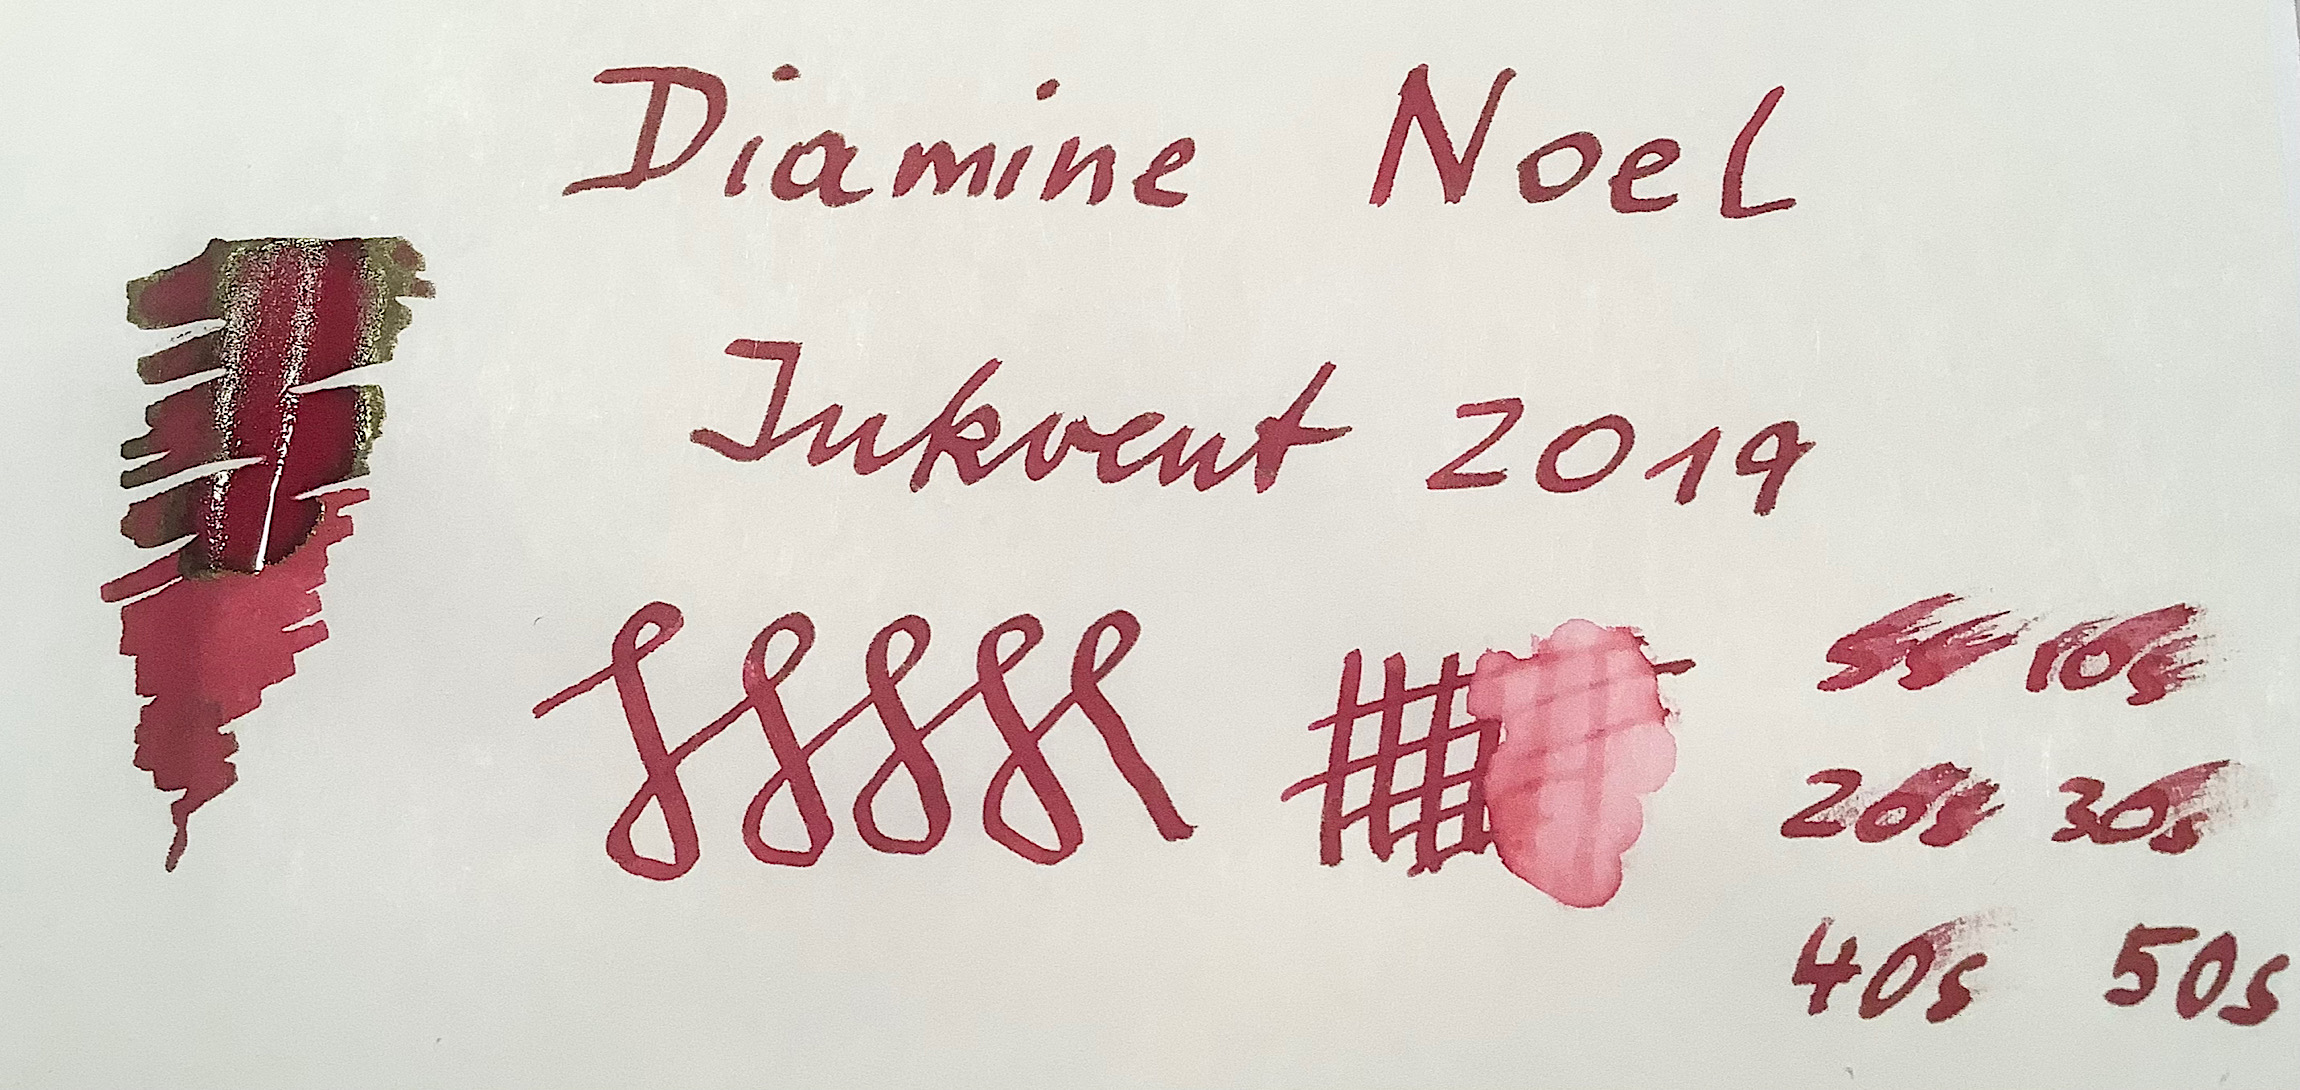 Diamine Noel
Inkvent 2019
5s 10s
20s 30s
40s 50s